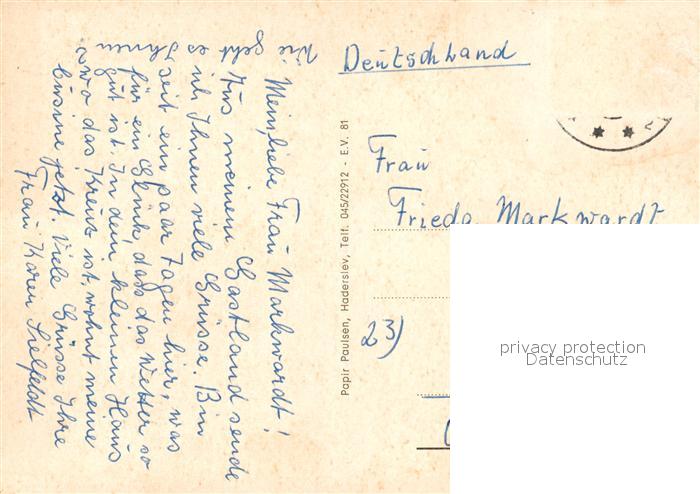 Mein liebe Frau Markwardt!
Aus meinem Gastland sende
ich Ihnen viele Grüsse. Bin
seit ein paar Tagen hier, was
für ein Glück, dass das Wetter so
gut ist. In dem kleinen Haus
wo das Kreuz ist, wohnt meine
Cusine jetzt. Viele Grüsse Ihre
Frau Karen
Wie geht es Ihnen
Papir Paulsen, Haderslev, Telf. 045/22912 - E.V. 81
Deutschland
Frau
Frieda Markwardt
23)
privacy protection
Datenschutz